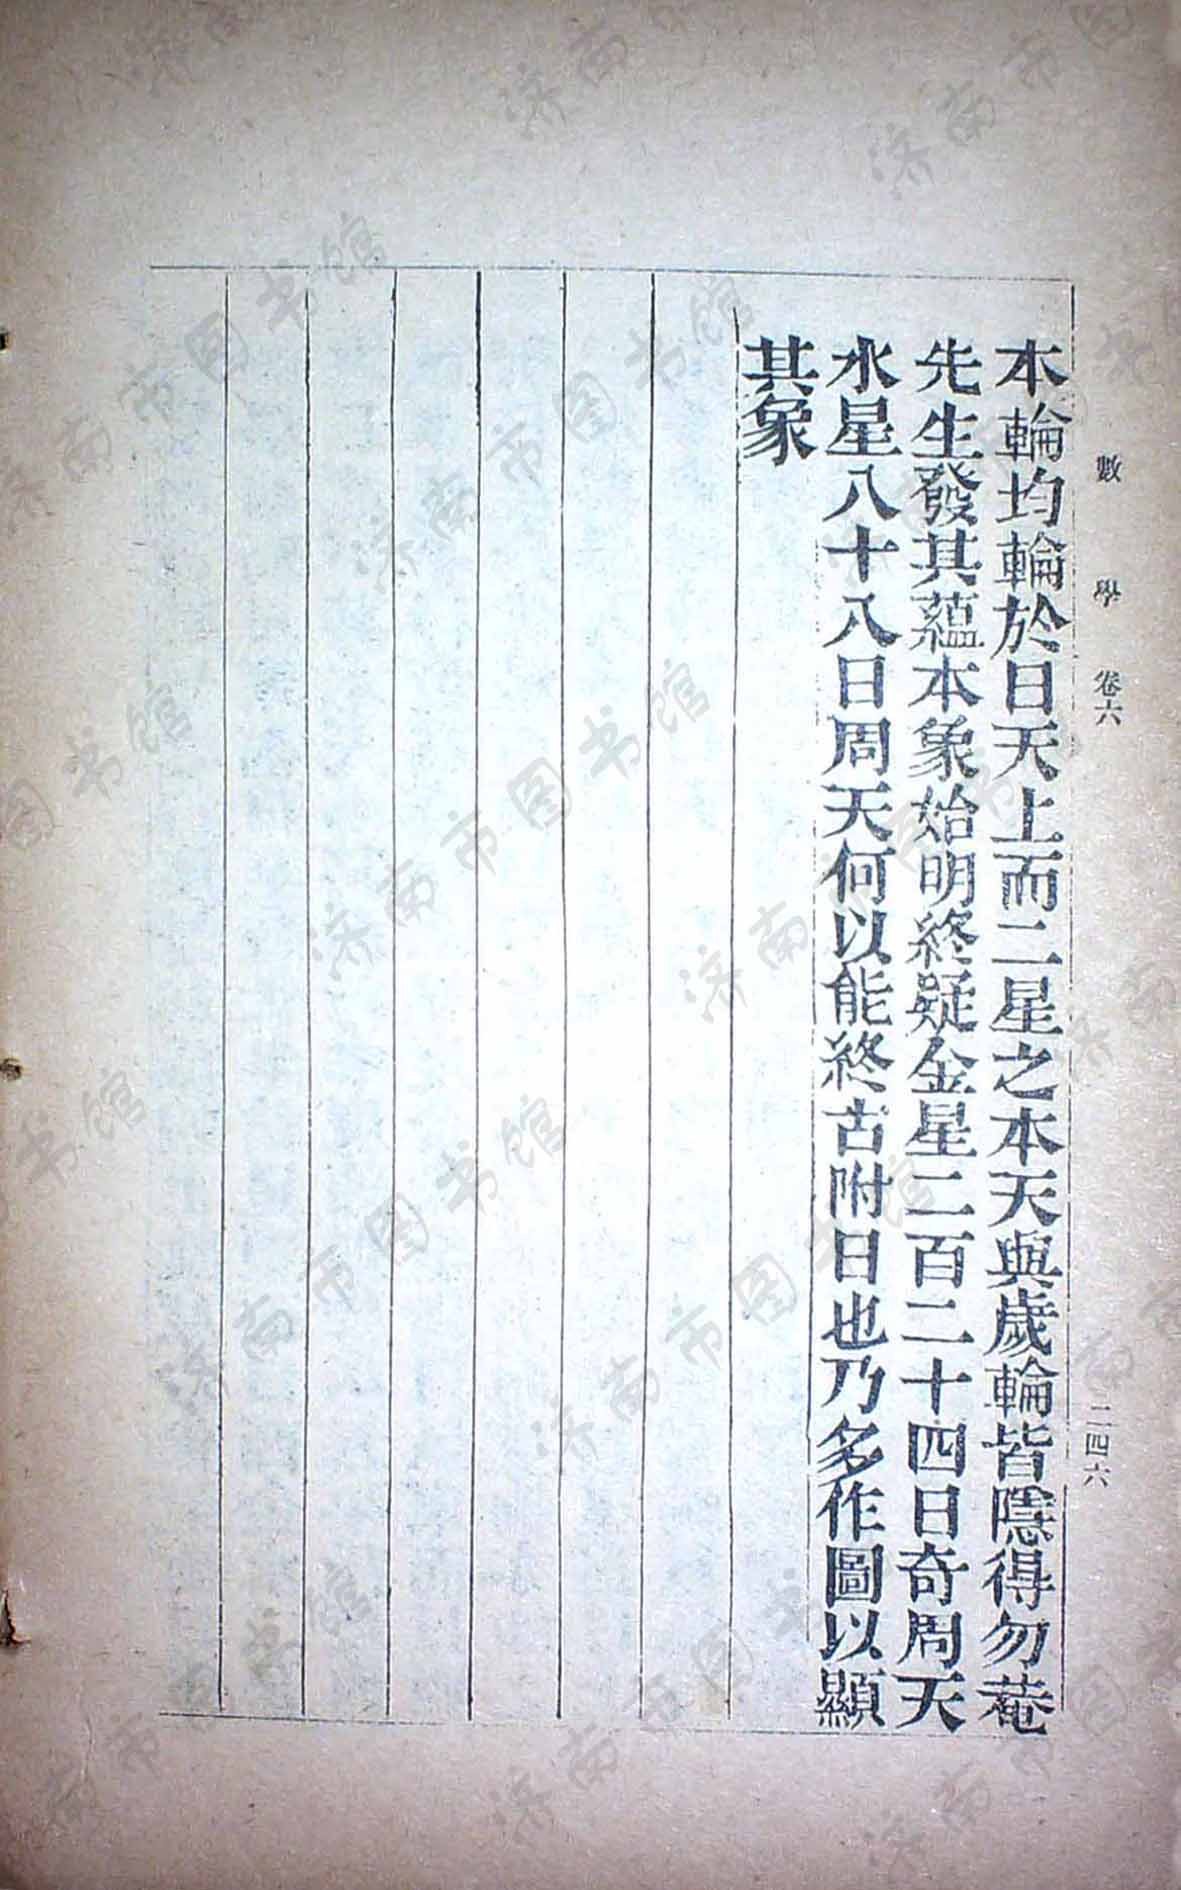 數學 卷六 二四六
本輪均輪於日天上而二星之本天與歲輪皆隱得勿菴
先生發其蘊本象始明終疑金星二百二十四日奇周天
水星八十八日周天何以能終古附日也乃多作圖以顯
其象
济南市图书馆